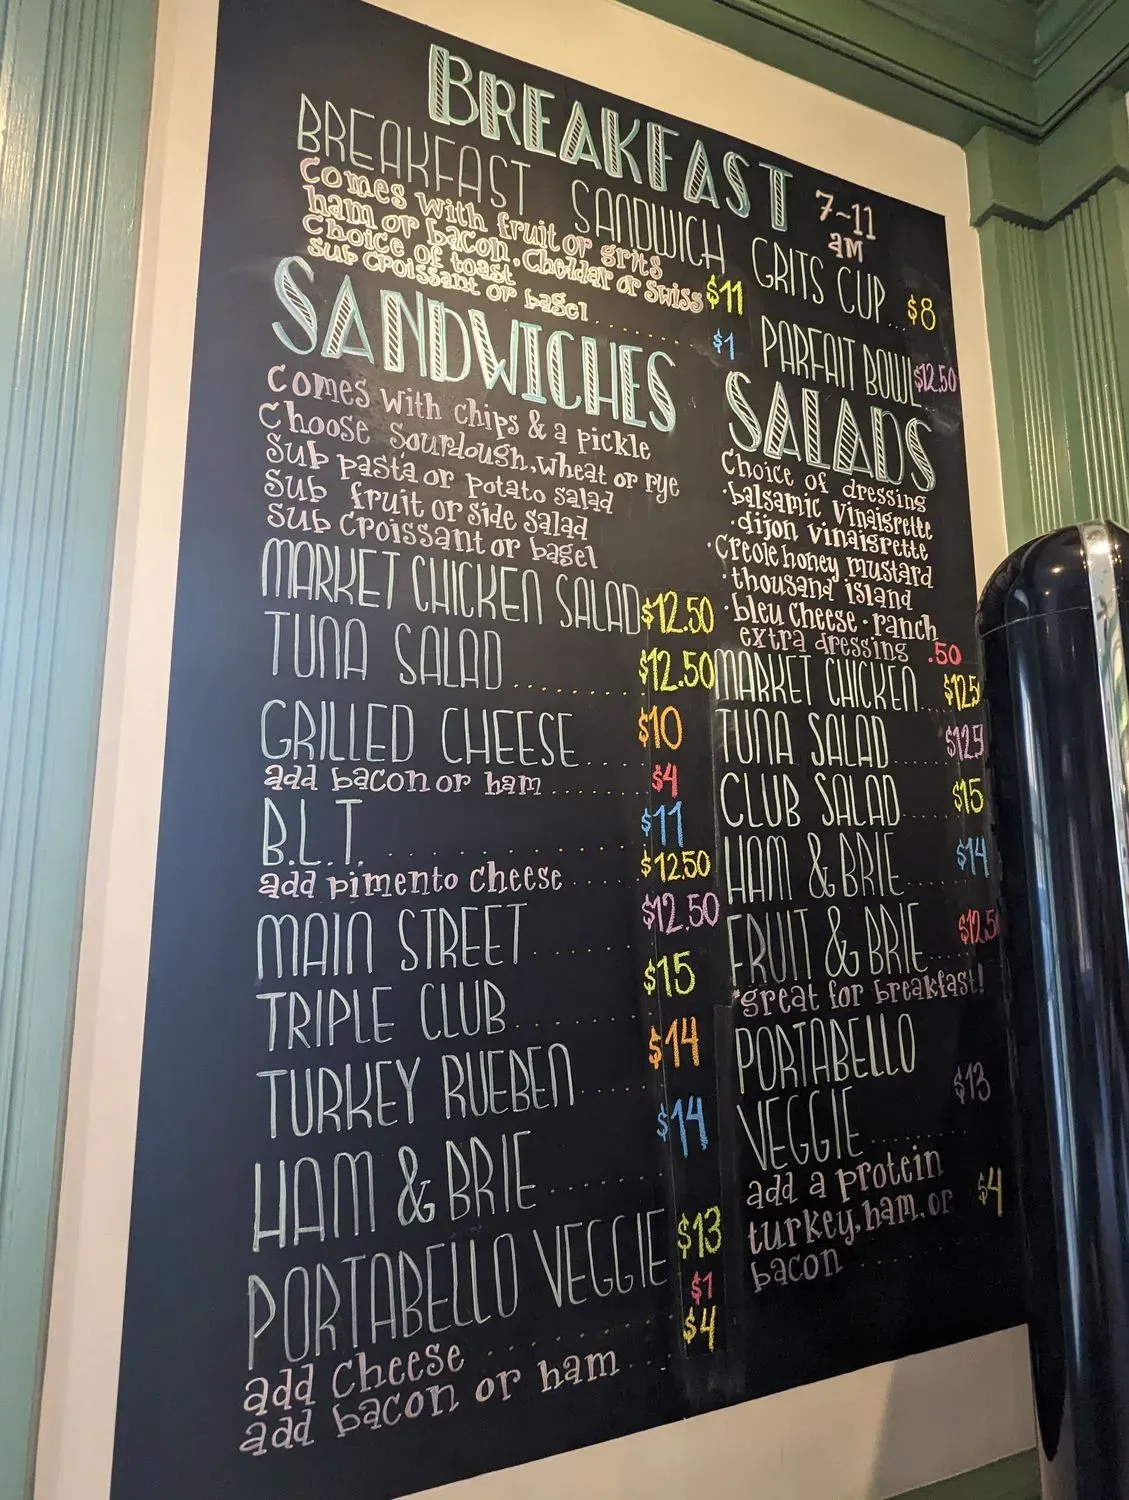 BREAKFAST 7-11 AM
BREAKFAST SANDWICH
Comes with fruit or grits
ham or bacon · Cheddar or Swiss $11
Choice of toast
sub croissant or bagel........ $1
GRITS CUP... $8
PARFAIT BOWL $12.50
SANDWICHES
Comes with chips & a pickle
Choose Sourdough, wheat or rye
Sub pasta or potato salad
Sub fruit or side salad
sub Croissant or bagel
MARKET CHICKEN SALAD $12.50
TUNA SALAD......... $12.50
GRILLED CHEESE.... $10
add bacon or ham........ $4
B.L.T........... $11
add pimento cheese..... $12.50
MAIN STREET..... $12.50
TRIPLE CLUB...... $15
TURKEY RUEBEN.... $14
HAM & BRIE...... $14
PORTABELLO VEGGIE $13
add Cheese......... $1
add bacon or ham.... $4
SALADS
Choice of dressing
·balsamic Vinaigrette
·dijon vinaigrette
·Creole honey mustard
·thousand island
·bleu Cheese ·ranch
extra dressing .50
MARKET CHICKEN.... $12.5
TUNA SALAD...... $12.5
CLUB SALAD..... $15
HAM & BRIE..... $14
FRUIT & BRIE.... $12.50
*great for breakfast!
PORTABELLO
VEGGIE......... $13
add a protein
turkey, ham, or $4
bacon ........